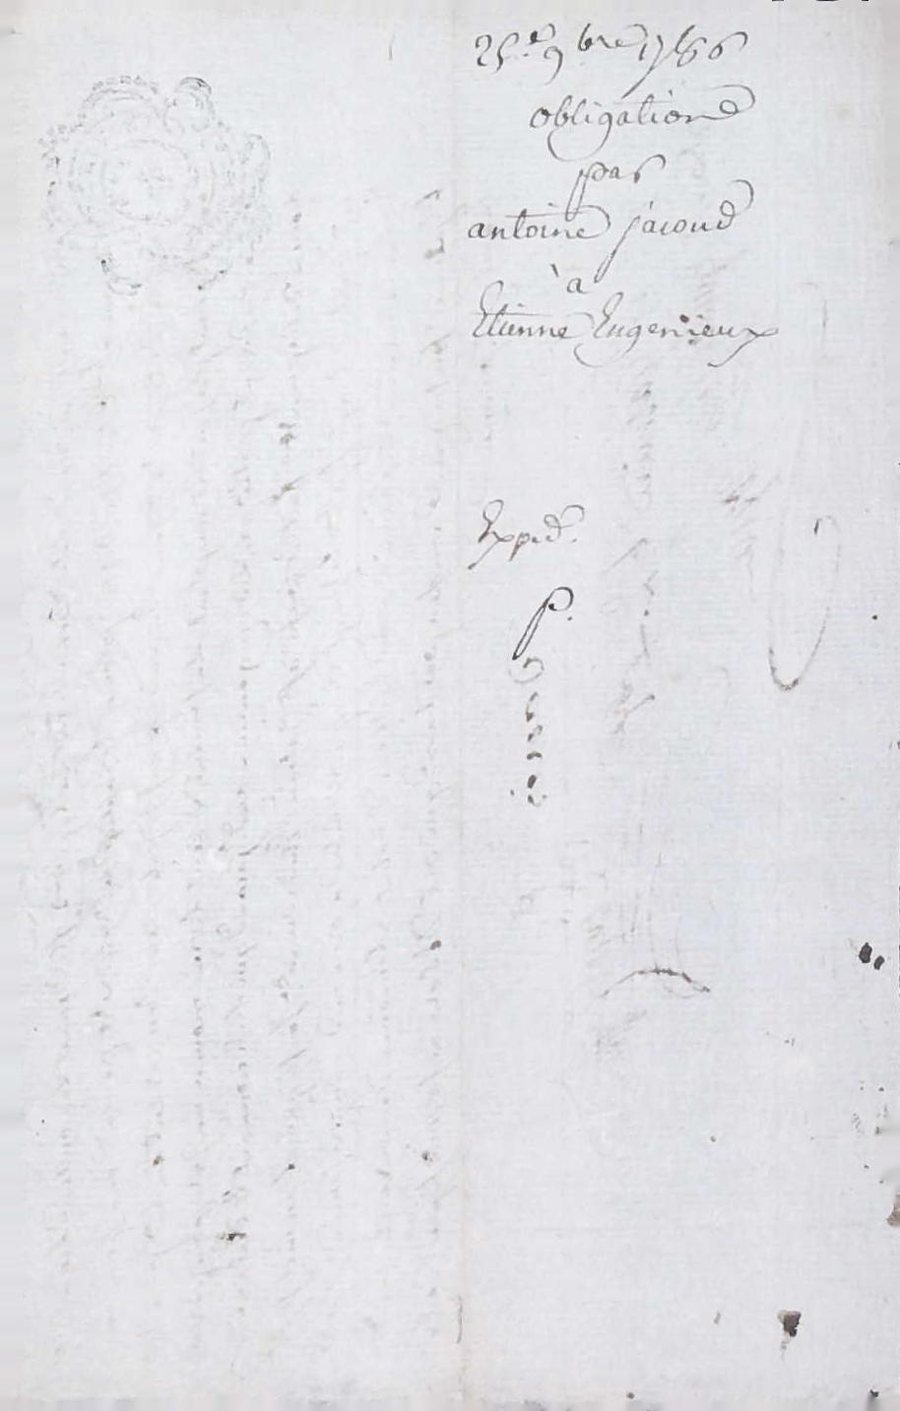 25.e 9bre 1786
obligation
par
antoine jacoud
à
Etienne Eugenieux
Exped.
P.